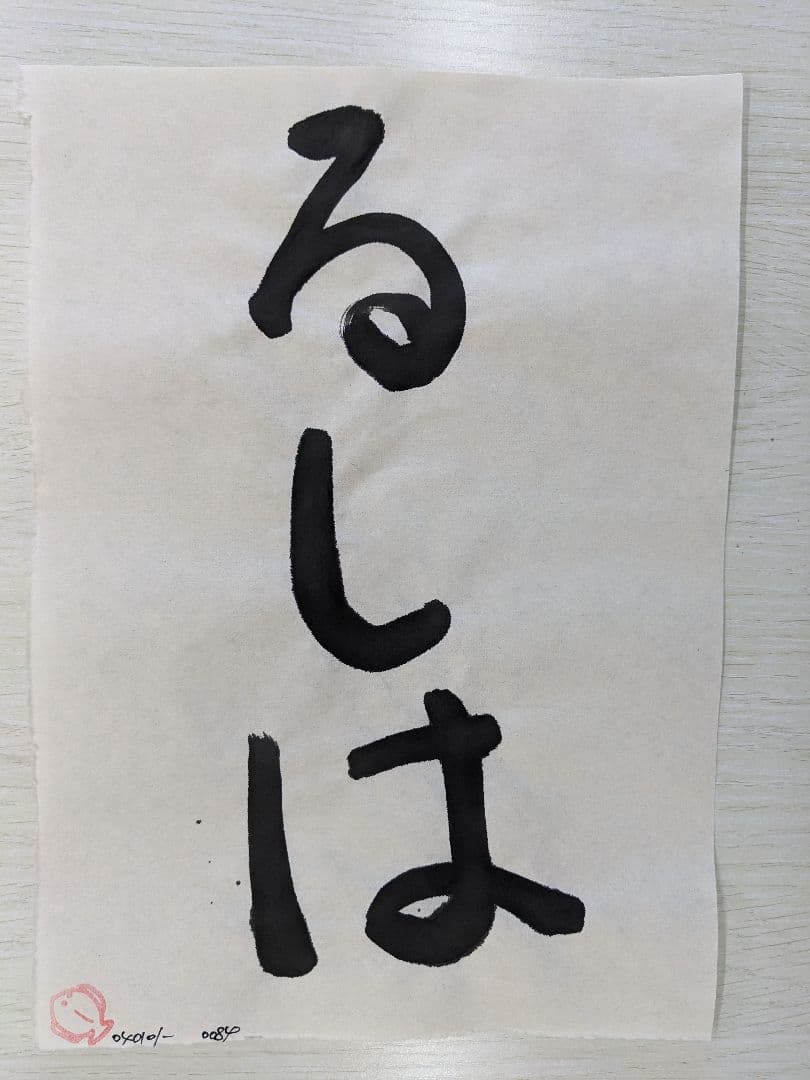 るしは
040101- 0084